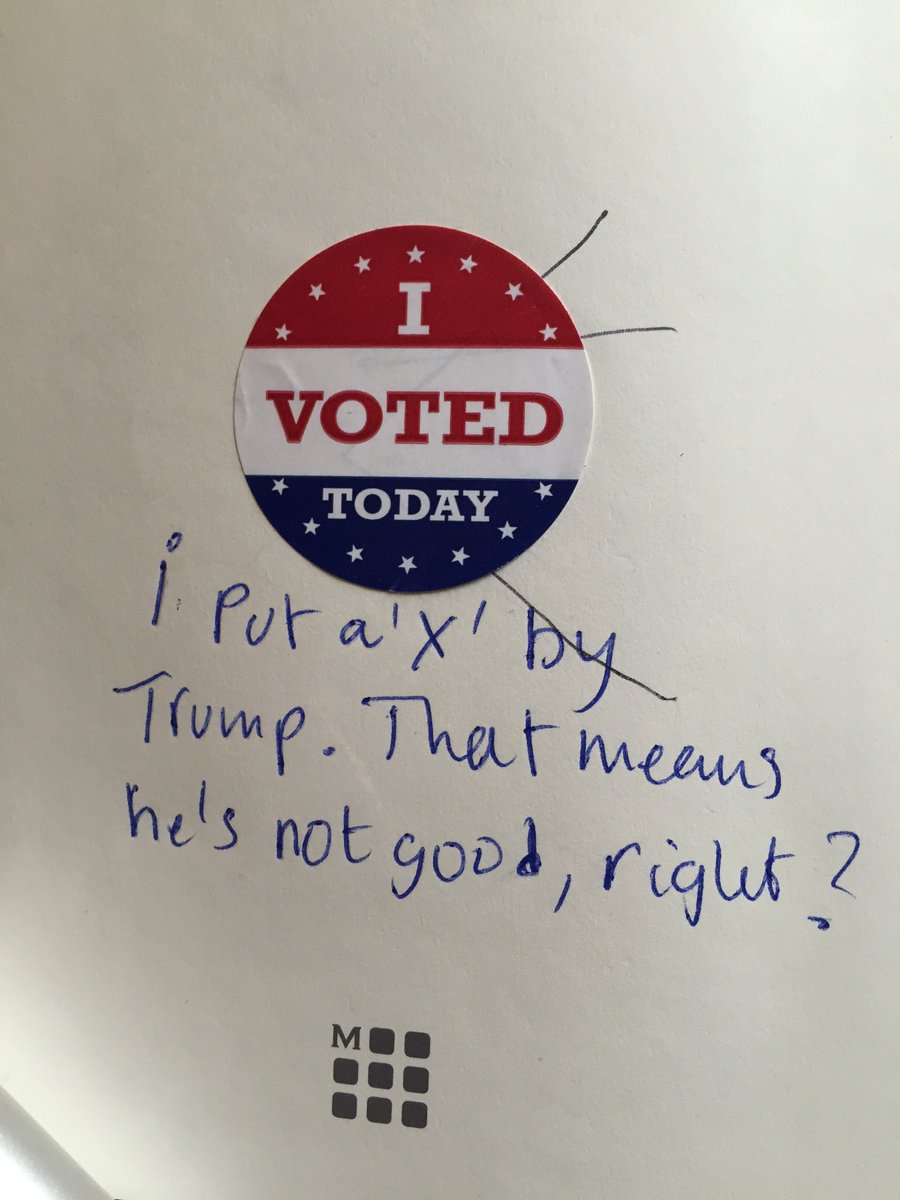 I
VOTED
TODAY
i put a 'X' by
Trump. That means
he's not good, right?
M